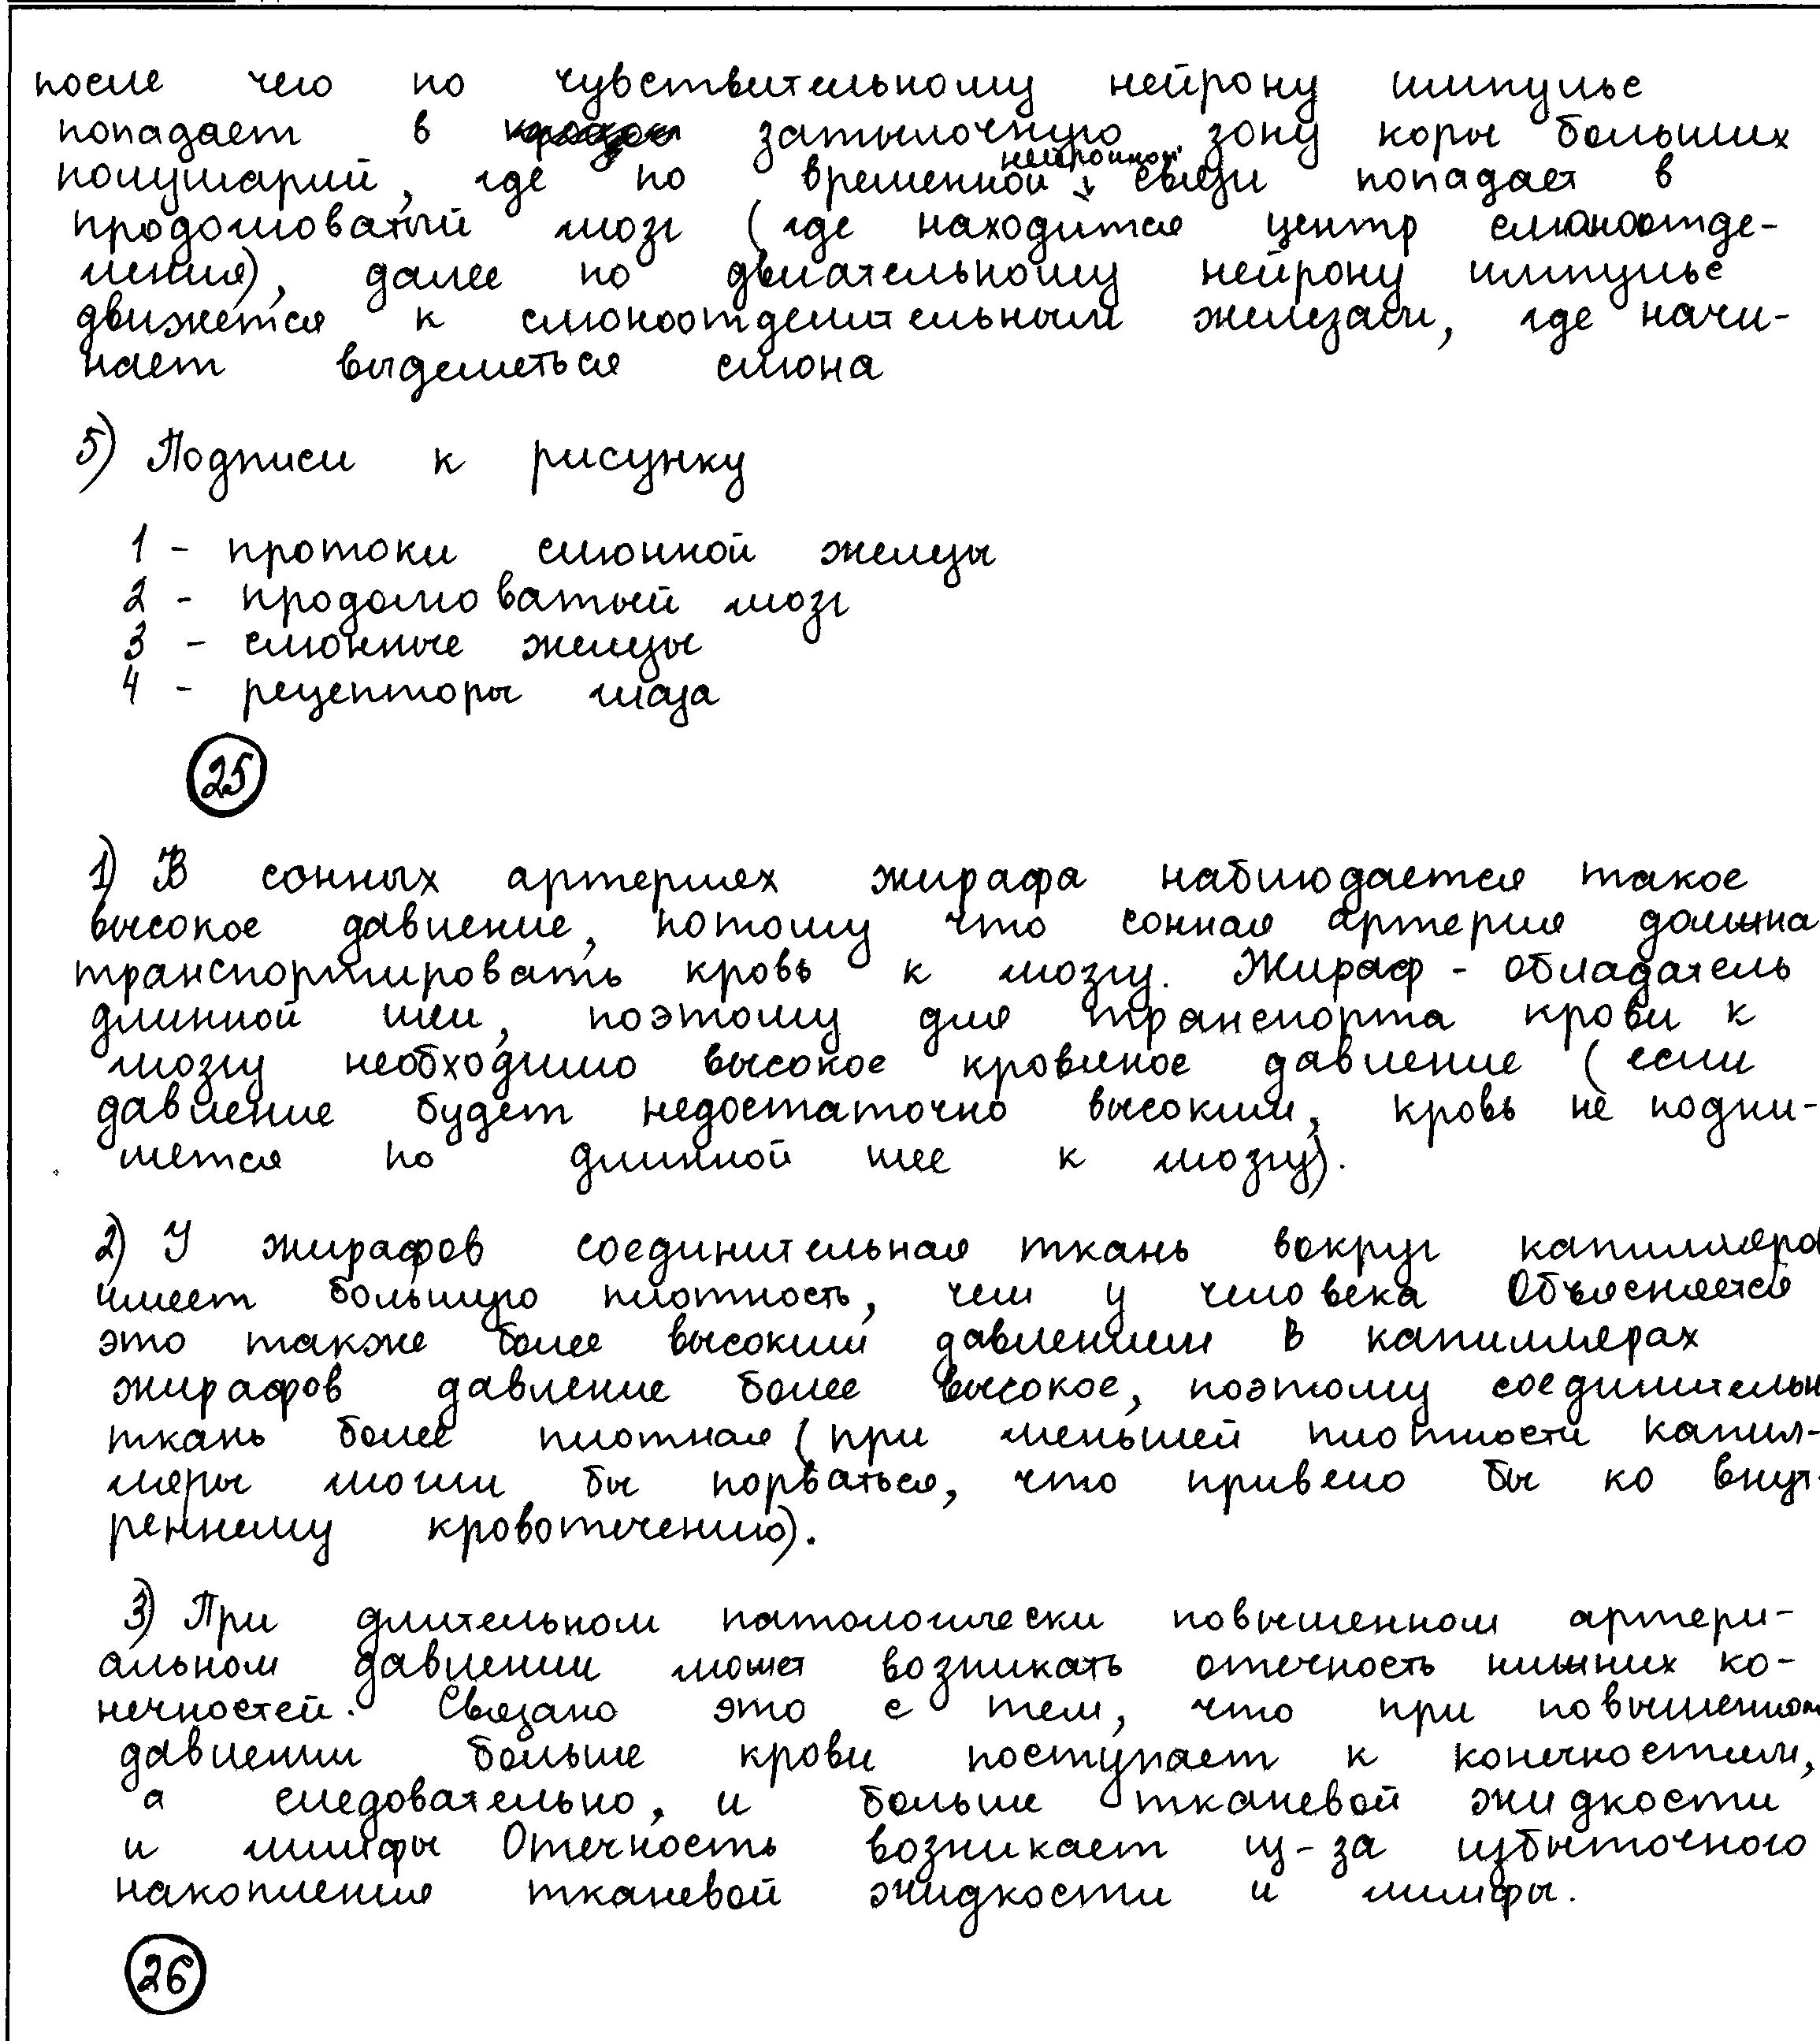 после чего по чувствительному нейрону импульс
попадает в затылочную зону коры больших
полушарий, где по временной нейронной связи попадает в
продолговатый мозг (где находится центр слюноотде-
ления), далее по двигательному нейрону импульс
движется к слюноотделительным железам, где начи-
нает выделяться слюна
5) Подписи к рисунку
1 - протоки слюнной железы
2 - продолговатый мозг
3 - слюнные железы
4 - рецепторы глаза
25
1) В сонных артериях жирафа наблюдается такое
высокое давление, потому что сонная артерия должна
транспортировать кровь к мозгу. Жираф - обладатель
длинной шеи, поэтому для транспорта крови к
мозгу необходимо высокое кровяное давление (если
давление будет недостаточно высоким, кровь не подни-
мется по длинной шее к мозгу).
2) У жирафов соединительная ткань вокруг капилляро
имеет большую плотность, чем у человека Объясняется
это также более высоким давлением В капиллярах
жирафов давление более высокое, поэтому соединительн
ткань более плотная (при меньшей плотности капил-
ляры могли бы порваться, что привело бы ко внут-
реннему кровотечению).
3) При длительном патологически повышенном артери-
альном давлении может возникать отечность нижних ко-
нечностей. Связано это с тем, что при повышенном
давлении больше крови поступает к конечностям,
а следовательно, и больше тканевой жидкости
и лимфы Отечность возникает из-за избыточного
накопления тканевой жидкости и лимфы.
26